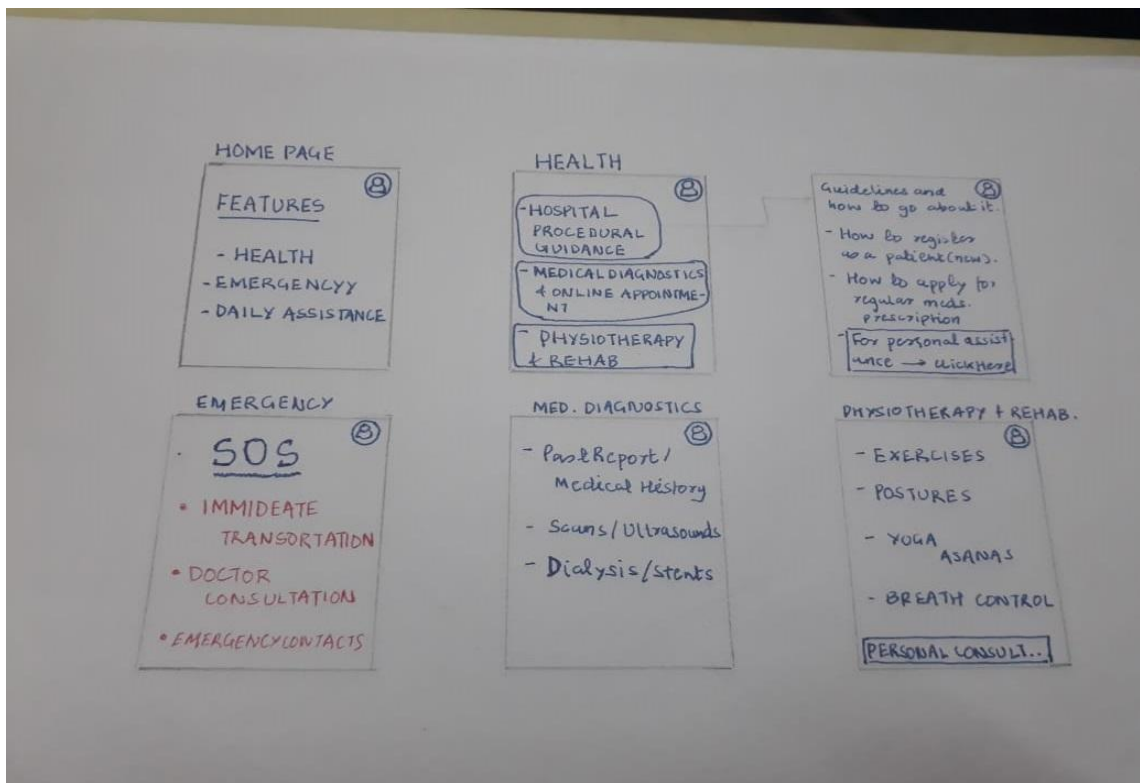 HOME PAGE
FEATURES
- HEALTH
- EMERGENCYY
- DAILY ASSISTANCE
HEALTH
- HOSPITAL
PROCEDURAL
GUIDANCE
- MEDICAL DIAGNOSTICS
& ONLINE APPOINTME-
NT
- PHYSIOTHERAPY
& REHAB
Guidelines and
how to go about it.
- How to register
as a patient (new).
- How to apply for
regular meds.
prescription
- For personal assist
ance → click Here
EMERGENCY
SOS
• IMMIDEATE
TRANSORTATION
• DOCTOR
CONSULTATION
• EMERGENCY CONTACTS
MED. DIAGNOSTICS
- Past Report /
Medical History
- Scans / Ultrasounds
- Dialysis / Stents
PHYSIOTHERAPY + REHAB.
- EXERCISES
- POSTURES
- YOGA
ASANAS
- BREATH CONTROL
PERSONAL CONSULT..